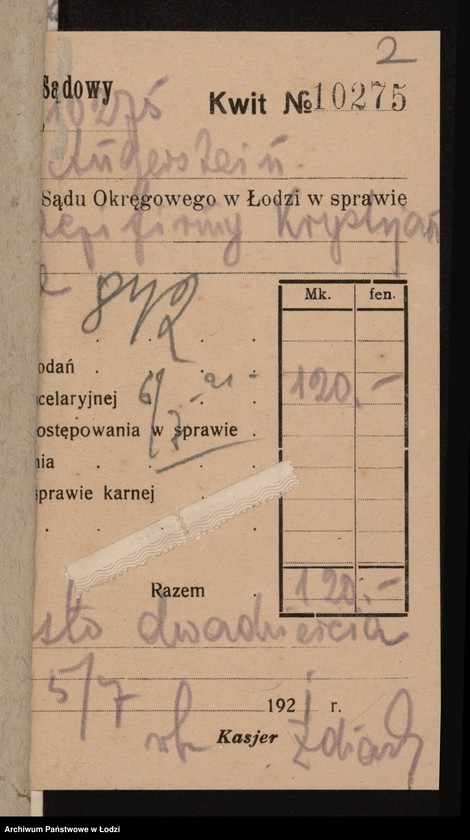 2
Sądowy
Kwit № 10275
Augerstein
Sądu Okręgowego w Łodzi w sprawie
firmy Krystjan
Mk. fen.
odań
celaryjnej 120.—
ostępowania w sprawie
nia
sprawie karnej
Razem 120.—
sto dwadzieścia
5/7 1921 r.
Kasjer
Archiwum Państwowe w Łodzi